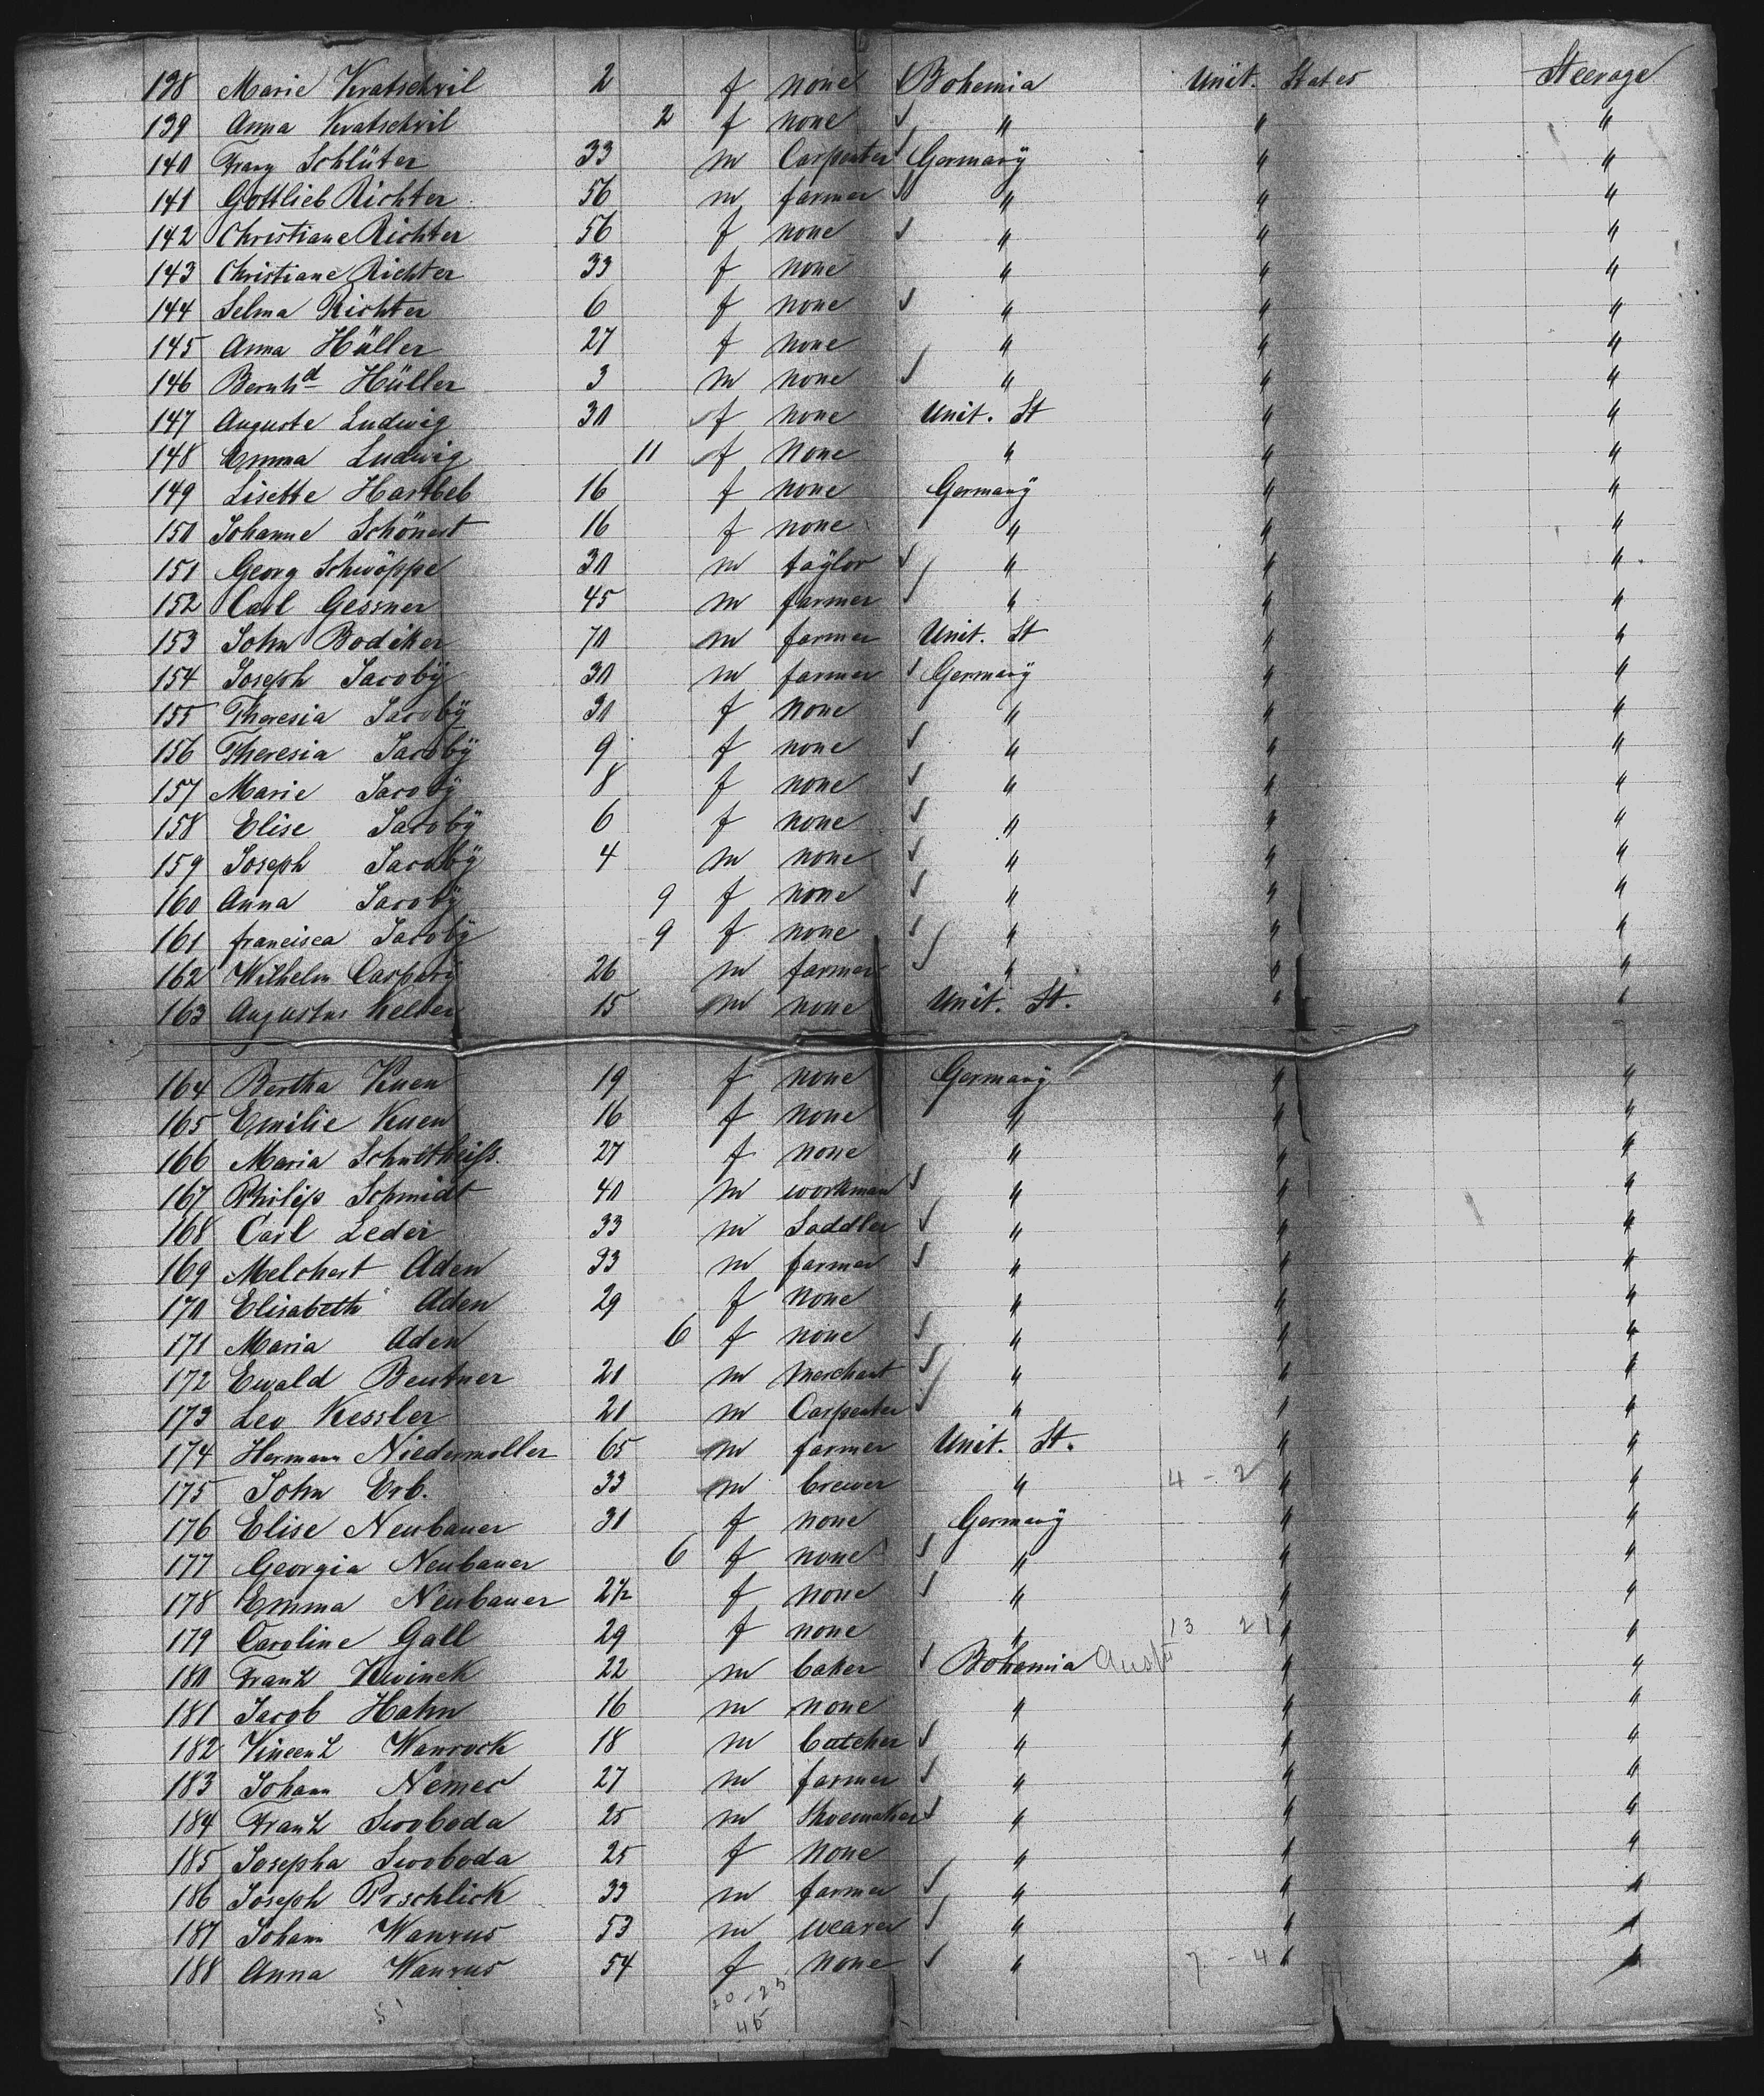 138 Marie Kratschvil 2 f none Bohemia Unit. States Steerage
139 Anna Kratschvil 2 f none " " "
140 Franz Schlüter 33 m Carpenter Germany " "
141 Gottlieb Richter 56 m farmer " " "
142 Christiane Richter 56 f none " " "
143 Christiane Richter 33 f none " " "
144 Selma Richter 6 f none " " "
145 Anna Hüller 27 f none " " "
146 Bernhd Hüller 3 m none " " "
147 Auguste Ludwig 30 f none Unit. St " "
148 Emma Ludwig 11 f none " " "
149 Lisette Hartleb 16 f none Germany " "
150 Johanne Schönert 16 f none " " "
151 Georg Schwöppe 30 m taylor " " "
152 Carl Gessner 45 m farmer " " "
153 John Bodeker 70 m farmer Unit. St " "
154 Joseph Jacoby 30 m farmer Germany " "
155 Theresia Jacoby 30 f none " " "
156 Theresia Jacoby 9 f none " " "
157 Marie Jacoby 8 f none " " "
158 Elise Jacoby 6 f none " " "
159 Joseph Jacoby 4 m none " " "
160 Anna Jacoby 9 f none " " "
161 francisca Jacoby 9 f none " " "
162 Wilhelm Caspary 26 m farmer " " "
163 Augustus Kelber 15 m none Unit. St. " "
164 Bertha Kuen 19 f none Germany " "
165 Emilie Kuen 16 f none " " "
166 Maria Schultheiss 27 f none " " "
167 Philip Schmidt 40 m workman " " "
168 Carl Leder 33 m Saddler " " "
169 Melchert Aden 33 m farmer " " "
170 Elisabeth Aden 29 f none " " "
171 Maria Aden 6 f none " " "
172 Ewald Beutner 20 m merchant " " "
173 Leo Kessler 20 m Carpenter " " "
174 Hermann Niedermoller 65 m farmer Unit. St. " "
175 John Erb. 33 m brewer " 4 - 2 " "
176 Elise Neubauer 31 f none Germany " "
177 Georgia Neubauer 6 f none " " "
178 Emma Neubauer 2½ f none " " "
179 Caroline Gall 29 f none " 13 21 " "
180 Franz Kwinek 22 m baker Bohemia Aust " "
181 Jacob Hahn 16 m none " " "
182 Vincenz Wanrock 18 m butcher " " "
183 Johann Nemec 27 m farmer " " "
184 Franz Swoboda 25 m Shoemaker " " "
185 Josepha Swoboda 25 f none " " "
186 Joseph Proschlick 33 m farmer " " "
187 Johann Wanrus 53 m weaver " " "
188 Anna Wanrus 54 f none " 7 - 4 " "
51 20 - 23
45